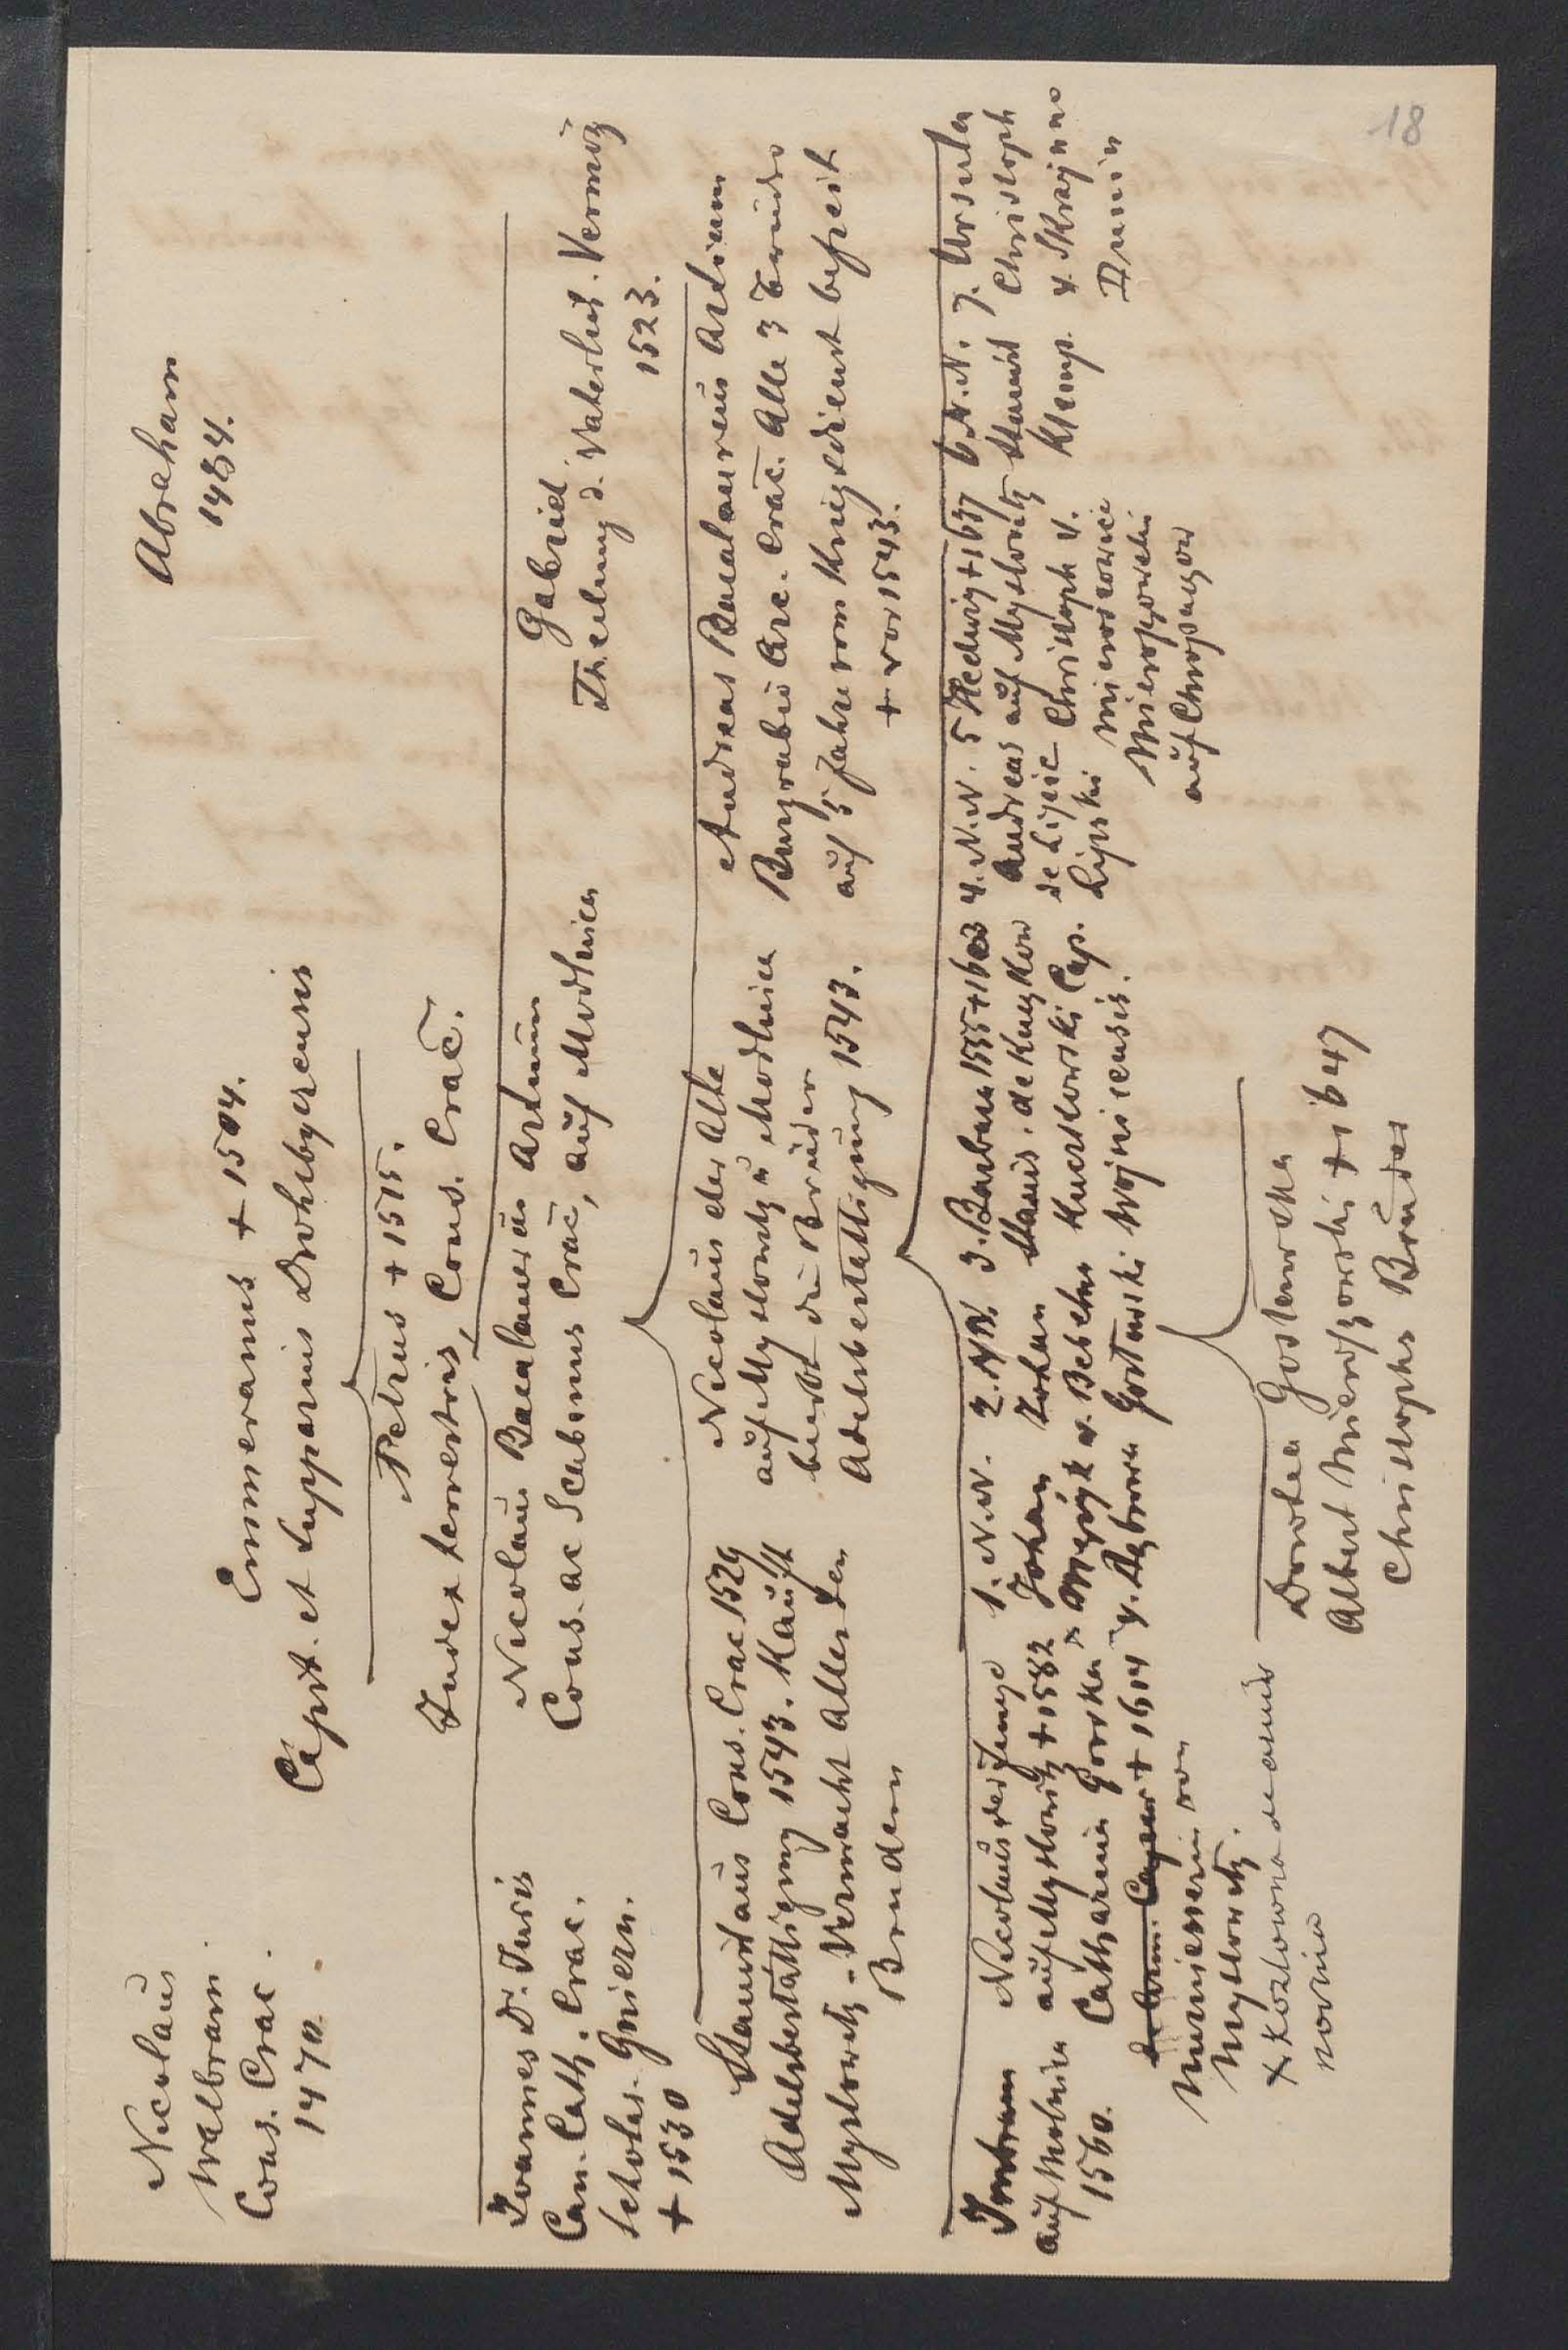 18
Abraham
1484.
Emmeramus + 1504.
Capit. et Supparius Drohobycensis
Nicolaus
Walbram.
Cons. Crac.
1470.
Petrus + 1515.
Judex terrestris, Cons. Crac.
Joannes Dr. Juris
Can. Cath. Crac.
Scholas. Gniezn.
+ 1530
Nicolaus Bacalaureus Artium
Cons. ac Scabinus Crac, auf Modlnica
Gabriel
Theilung d. Väterlich. Vermög
1523.
Stanislaus Cons. Crac 1529
Adelsbestättigung 1543. Kauft
Myslowitz. Vermacht Alles den
Brudern
Nicolaus der Alte
auf Myslowitz u Modlnica
beerbt die Brüder
Adelsbestättigung 1543.
Andreas Bacalaureus Artium
Burgrabius Arc. Crac. Alle 3 Brüder
auf 5 Jahre vom Kriegsdienst befreit
+ vor 1543.
auf Modlnica
1560.
Nicolaus der Junge
auf Myslowitz + 1582
Catharina Gorska x
+ 1614
von
Myslowitz.
1. N.N.
Johan
v. Dąbrowa
2. N.N.
Johan
v. Bebeln
3. Barbara 1555 + 1603
Stanis. de
Cap.
Wojnicensis.
4. N.N.
Andreas
de Lipie
Lipski
5 Hedwig + 1637
auf Myslowitz
Christoph v.
Mieroszowice
Mieroszowski
auf Chropaczow
6. N.N.
Stanisl
7. Ursula
Christoph
v. Skrzynno
Dunin
x Kozlowna
Dorothea
Albert Mieroszowski + 1647
Christophs Bruder